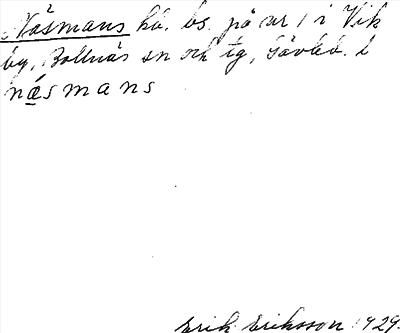 Näsmans hä. bs. på nr 1 i Vik
by, Bollnäs sn och tg, Gävleb. l
näsmans
Erik Eriksson 1929.